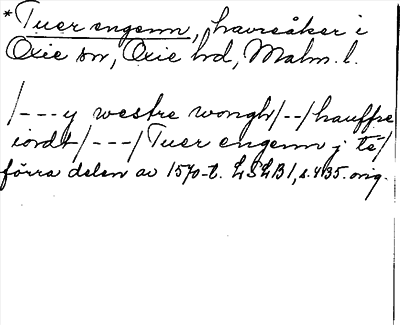 *Tuer engenn, havreåker i
Oxie sn, Oxie hd, Malm. l.
/---y westre wongh/--/hauffre
iordt/---/Tuer engenn j tē/
förra delen av 1570-t. LSLB1, s. 435. orig.